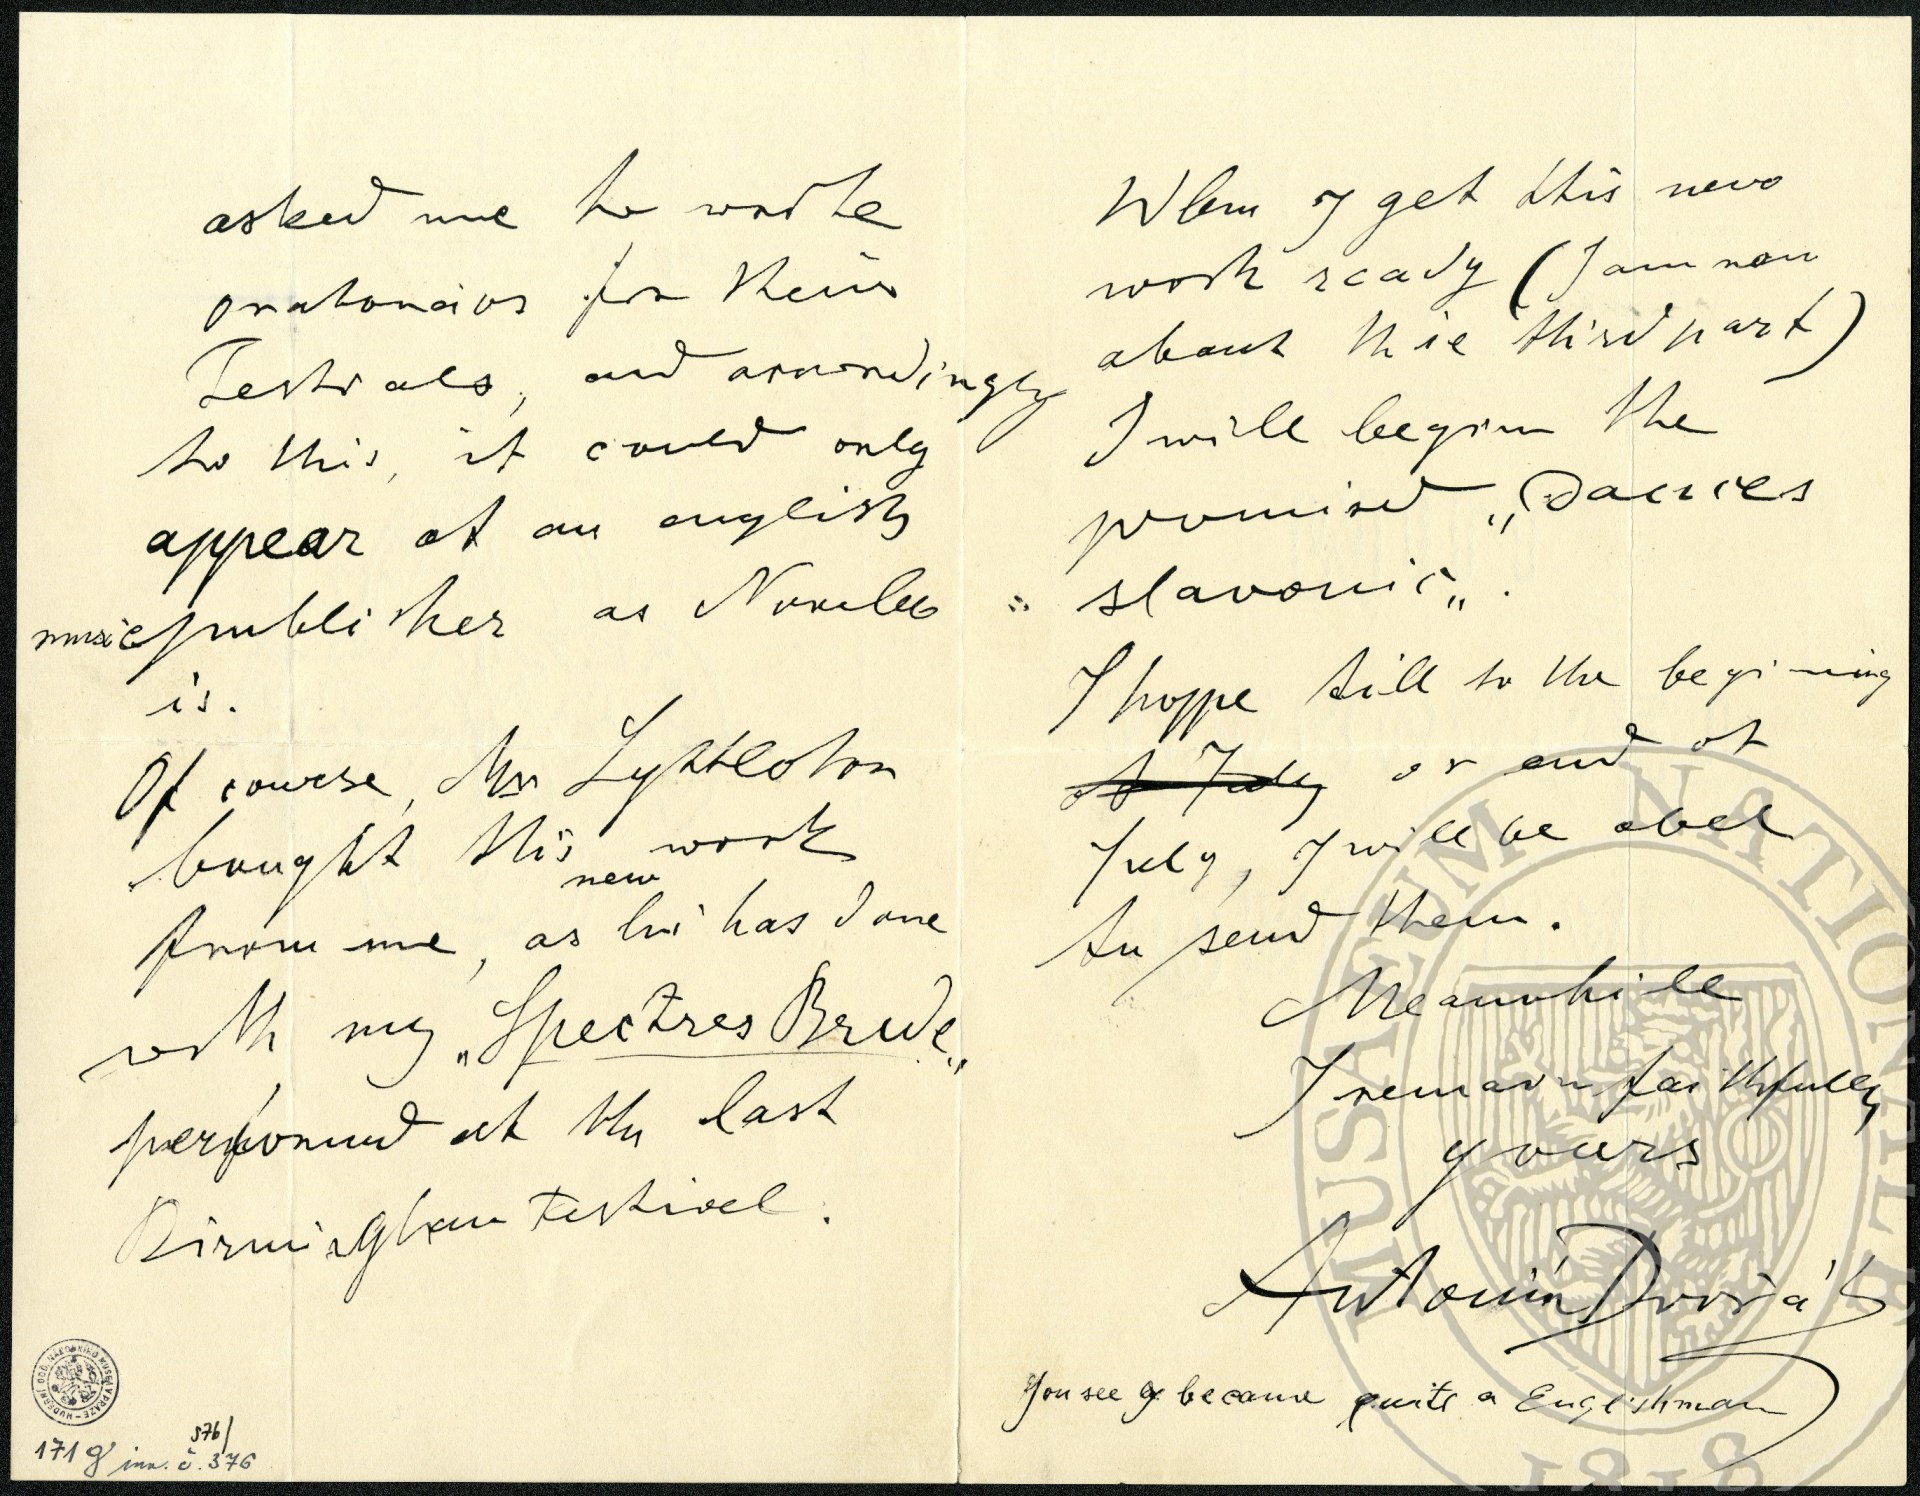 asked me to wrote
oratorios for their
Festivals, and accordingly
to this, it could only
appear at an english
music publisher as Novello
is.
Of course, Mr Lyttleton
bought this new work
from me, as hi has done
with my „Spectres Bride„
performed at the last
Birmingham Festivel.
171 g inv. č. 376
576/
When I get this new
work ready (I am now
about thie third part)
I will begin the
promised „Dances
slavonic„.
I hoppe till to the begining
of July or end of
July, I will be abel
to send them.
Meanwhile
I remain faithfully
yours
Antonín Dvořák
You see I became quite a Englishman
MUSAEUM NATIONALE
1818